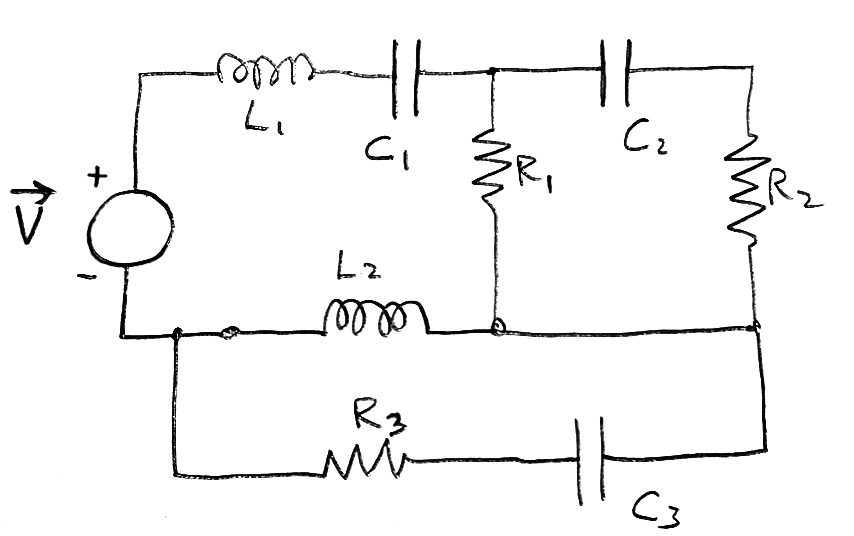 L1
C1
C2
+
R1
R2
V
-
L2
R3
C3